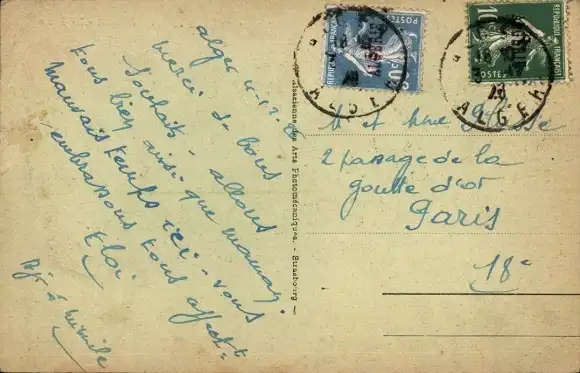 alger 4-12-
merci de bons
souhaits - allons
tous bien ainsi que maman.
mauvais temps ici - vous
embrassons tous affectt
Eloi
Alsacienne des Arts Photomécaniques. - Strasbourg
POSTES
REPUBLIQUE FRANÇAISE
ALGERIE
10
POSTES
REPUBLIQUE FRANÇAISE
ALGERIE
ALGER
ALGER
M et Mme
2 passage de la
goutte d'or
Paris
18e